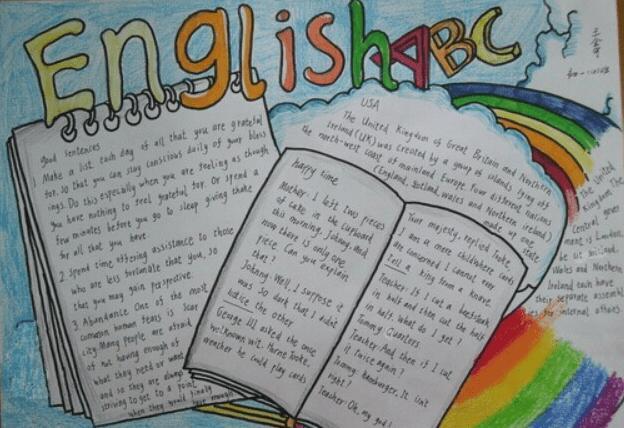 English ABC
good sentences
1 Make a list each day of all that you are grateful
for. So that you can stay conscious daily of your bless
ings. Do this especially when you are feeling as though
you have nothing to feel grateful for. Or spend a
few minutes before you go to sleep giving thanks
for all that you have.
2. Spend time offering assistance to those
who are less fortunate that you, so
that you may gain perspective.
3. Abundance One of the most
common human fears is scar
city Many people are afraid
of not having enough of
what they need or want
and so they are always
striving to get to a point
when they would finally
have enough
USA
The United Kingdom of Great Britain and Northern
Ireland (UK) was created by a group of islands lying off
the north-west coast of mainland Europe. Four different nations
(England, Scotland, Wales and Northern ireland)
made up one
state
The United
Kingdom The
Central gover
ment is London,
Wales and Northern
Ireland each have
their separate assembl
ies for internal affairs
Happy time
Mother: I left two pieces
of cake in the cupboard
this morning, Johnny, and
now there is only one
piece. Can you explain
that?
Johnny: Well, I suppose it
was so dark that I didn't
notice the other
George III asked the once
wellknown wit, Horne Tooke,
wheather he could play cards
Your majesty, replied Tooke,
I am a mere child where cards
are concerned I cannot even
Tell a king from a knave
Teacher: If I cut a beefsteak
in half and then cut the half
in half, what do I get?
Tommy: Quarters
Teacher: And then if I cut
it twice again?
Tommy: hamburger, It isn't
right?
Teacher: Oh, my god!